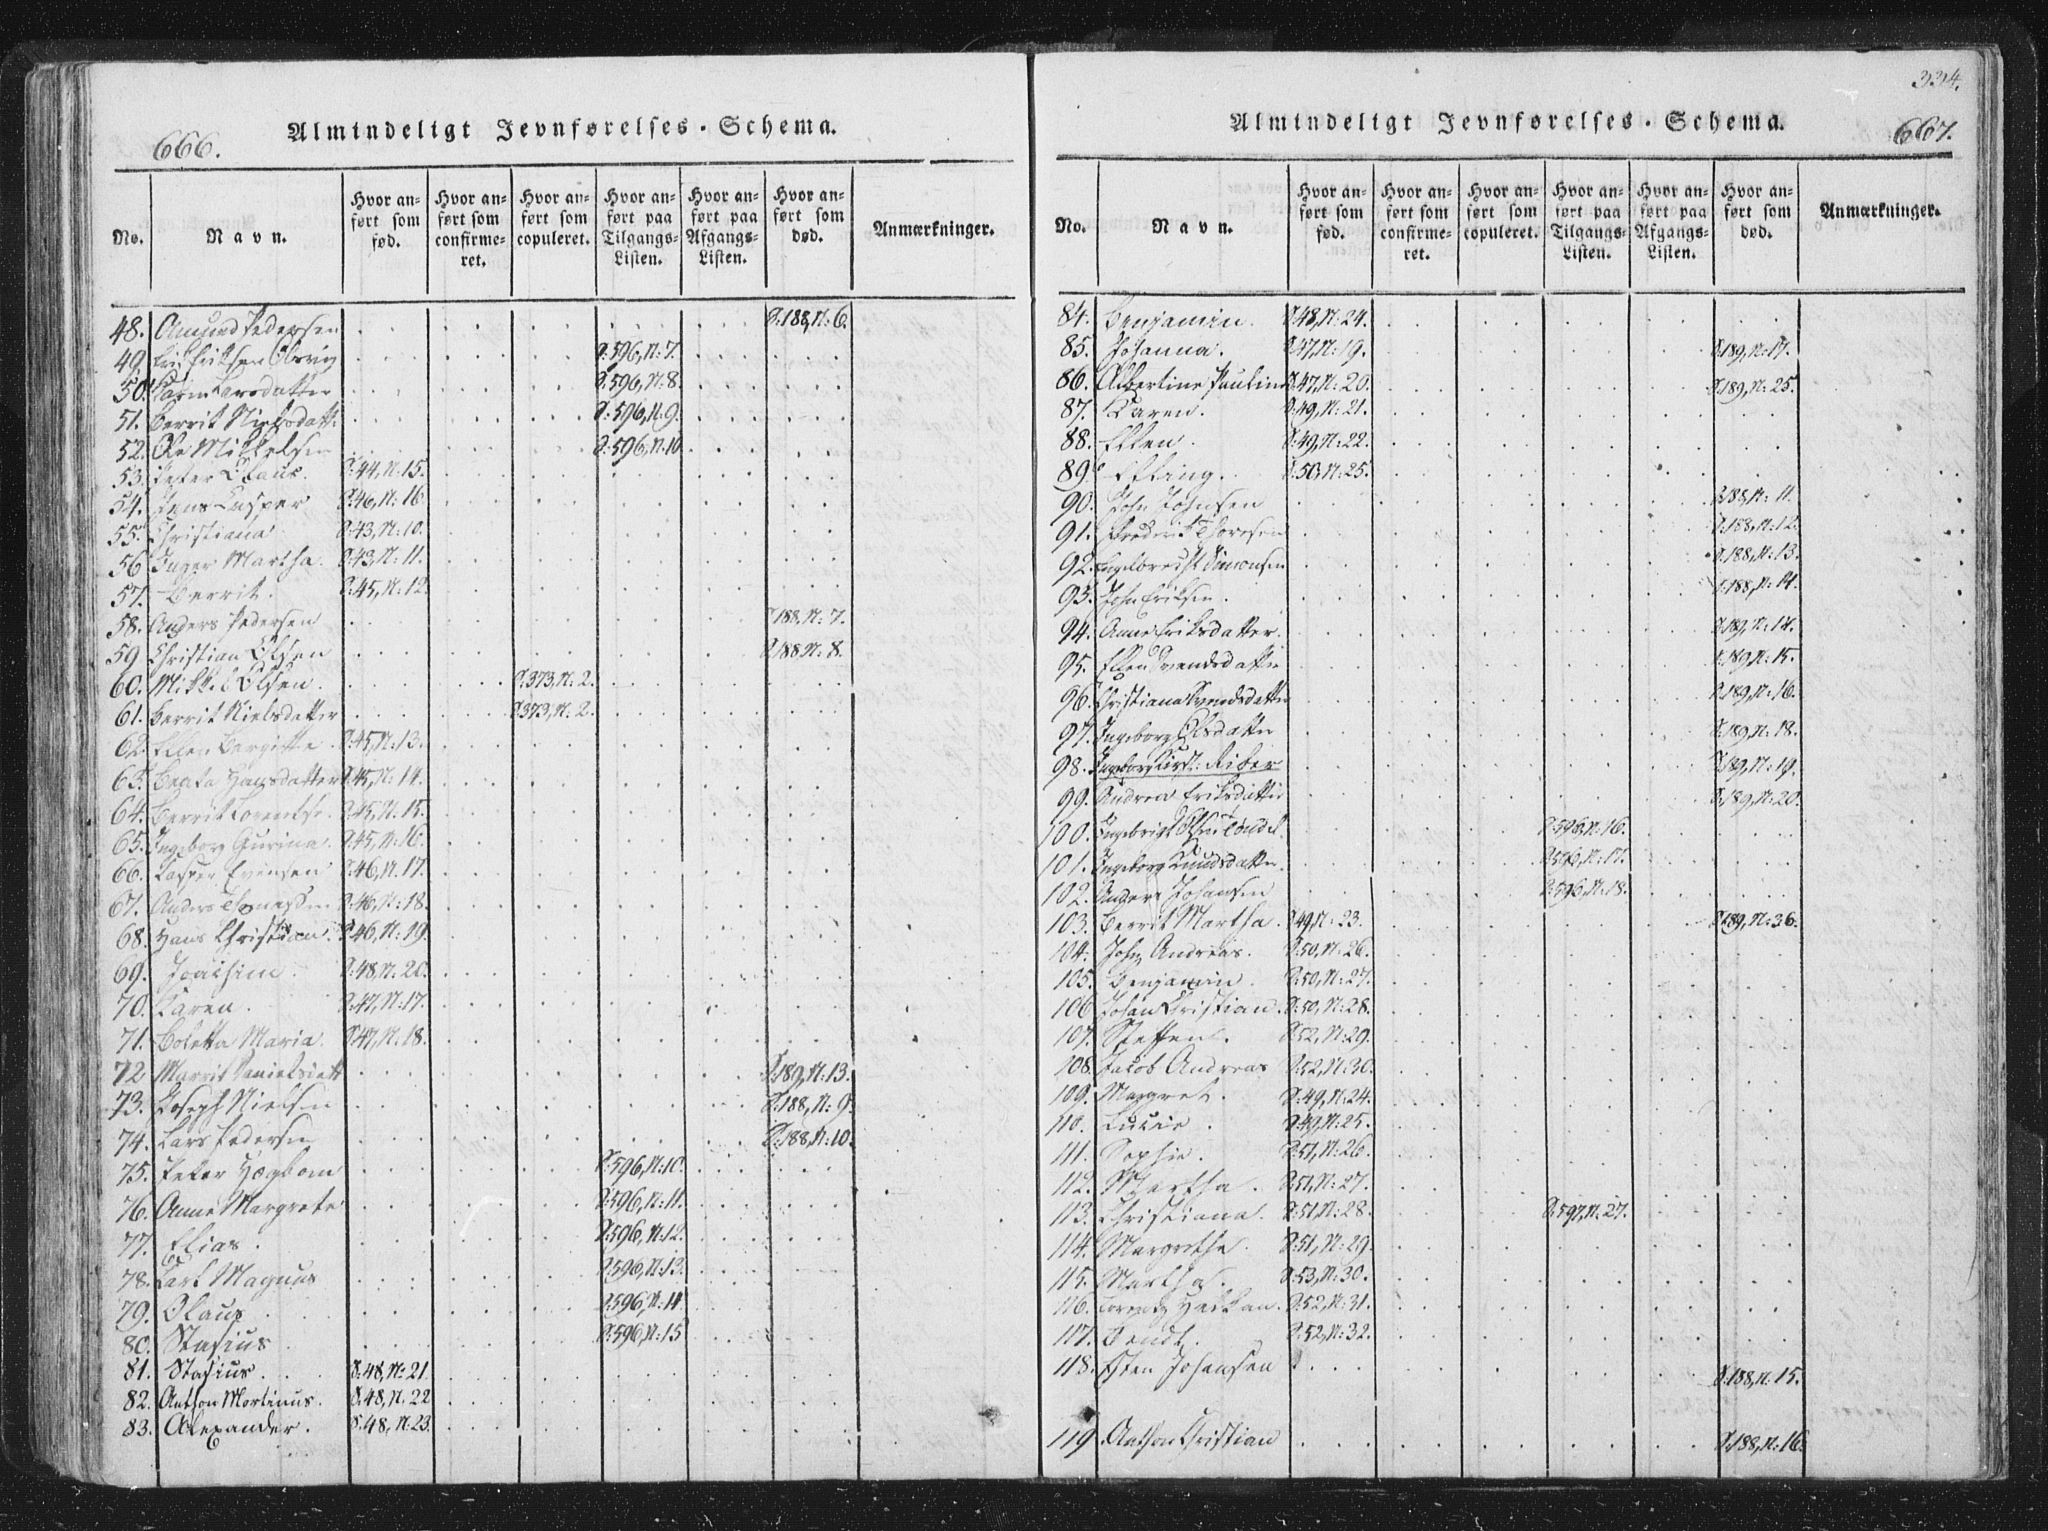 666.
Almindeligt Jevnførelses-Schema.
No.
Navn.
Hvor anført som fød.
Hvor anført som confirmeret.
Hvor anført som copuleret.
Hvor anført paa Tilgangs-Listen.
Hvor anført paa Afgangs-Listen.
Hvor anført som død.
Anmærkninger.
48. Amund Pedersen S:188, N:6.
49. Eriksen S:596, N:7.
50. Karen Larsdatter S:596, N:8.
51. Berrit Nielsdatt: S:596, N:9.
52. Ole Mikkelsen S:596, N:10
53. Peter Olaus. S:44, N:15.
54. Jens Casper S:46, N:16.
55. Christiana S:43, N:10.
56 Inger Martha. S:43, N:11.
57. Berrit. S:45, N:12.
58. Anders Pedersen S:188, N:7.
59 Christian Olsen S:188 N:8.
60. Mikkel Olsen. S:373, N:2.
61. Berrit Nielsdatter S:373, N:2.
62. Ellen Bergitte. S:45, N:13.
63. Beata Hansdatter S:45, N:14.
64. Berrit Lorentse. S:45, N:15.
65. Ingeborg Gurina. S:45, N:16.
66. Casper Evensen S:46, N:17.
67. Anders Thomassen S:46, N:18.
68. Hans Christian. S:46, N:19.
69. Joachim. S:48, N:20.
70. Karen. S:47, N:17.
71. Boletta Maria. S:47, N:18.
72 Marrit Danielsdatt S:189, N:13.
73. Joseph Nielsen S:188, N:9.
74. Lars Pedersen S:188, N:10.
75. Peter Hegbom S:596, N:10.
76. Anne Margrete S:596, N:11.
77. Elias. S:596, N:12.
78. Carl Magnus S:596, N:13.
79. Olaus S:596, N:14
80. Stasius S:596, N:15
81. Stasius. S:48, N:21
82. Anthon Mortinus. S:48, N:22
83. Alexander. S:48, N:23.
334.
667.
Almindeligt Jevnførelses-Schema.
No.
Navn.
Hvor anført som fød.
Hvor anført som confirmeret.
Hvor anført som copuleret.
Hvor anført paa Tilgangs-Listen.
Hvor anført paa Afgangs-Listen.
Hvor anført som død.
Anmærkninger.
84. Benjamin. S:48, N:24.
85. Johanna. S:47, N:19. S:189, N:17.
86. Albertine Pauline S:47, N:20. S:189, N:25.
87. Karen. S:49, N:21.
88. Ellen. S:49, N:22.
89. Elling. S:50, N:25.
90. John Johnsen S:188, N:11.
91. Frederik Thoresen S:188, N:12.
92. Engelbrecht Simonsen S:188, N:13.
93. John Eriksen. S:188, N:14.
94. Anne Eriksdatter. S:189, N:14.
95. Ellen Svendsdatter S:189, N:15.
96. Christiana Svendsdatter S:189, N:16.
97. Ingeborg Olsdatter S:189, N:18.
98. Ingeborg Kirst: Riber S:189, N:19.
99. Andrea Eriksdatter S:189, N:20.
100. Ingebrigt S:596, N:16.
101. Ingeborg Knudsdatter. S:596, N:17.
102. Anders Johansen S:596, N:18.
103. Berrit Martha. S:49, N:23. S:189, N:36.
104. John Andreas. S:50, N:26.
105. Benjamin. S:50, N:27.
106 Johan Christian. S:50, N:28.
107. Steffen. S:52, N:29.
108. Jacob Andreas S:52, N:30.
109. Margret. S:49, N:24.
110. Lucie. S:49, N:25.
111. Sophie. S:51, N:26.
112. Martha. S:51, N:27.
113. Christiana. S:51, N:28. S:597, N:27.
114. Margrethe. S:51, N:29.
115. Martha. S:53, N:30.
116. Lorentz Haakan. S:52, N:31.
117. Bendt. S:52, N:32.
118. Esten Johansen S:188, N:15.
119. Anthon Christian S:188, N:16.